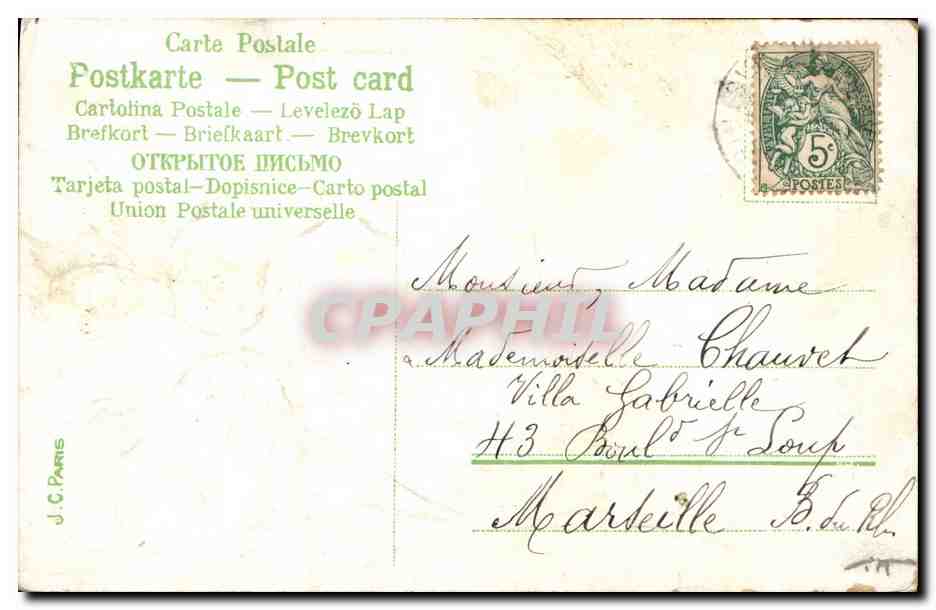 Carte Postale
Postkarte — Post card
Cartolina Postale — Levelezö Lap
Brefkort — Briefkaart — Brevkort
ОТКРЫТОЕ ПИСЬМО
Tarjeta postal–Dopisnice–Carto postal
Union Postale universelle
5c
POSTES
Monsieur, Madame
Mademoiselle Chauvet
Villa Gabrielle
43 Boul.d St Loup
Marseille B. du Rh.
CPAPHIL
J.C. PARIS